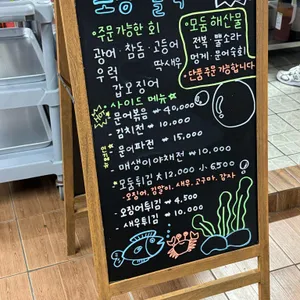 •주문 가능한 회
광어 · 참돔 · 고등어
우럭 딱새우
갑오징어
모둠 해산물
전복 뿔소라
멍게 · 문어숙회
•단품 주문 가능합니다
•사이드 메뉴
문어볶음 ₩40,000
김치전 ₩10,000
•문어파전 ₩15,000
•매생이야채전 ₩10,000
•모둠튀김 大12,000 小6500
- 오징어, 김말이, 새우, 고구마, 감자
-오징어튀김 ₩4,500
-새우튀김 ₩10,000